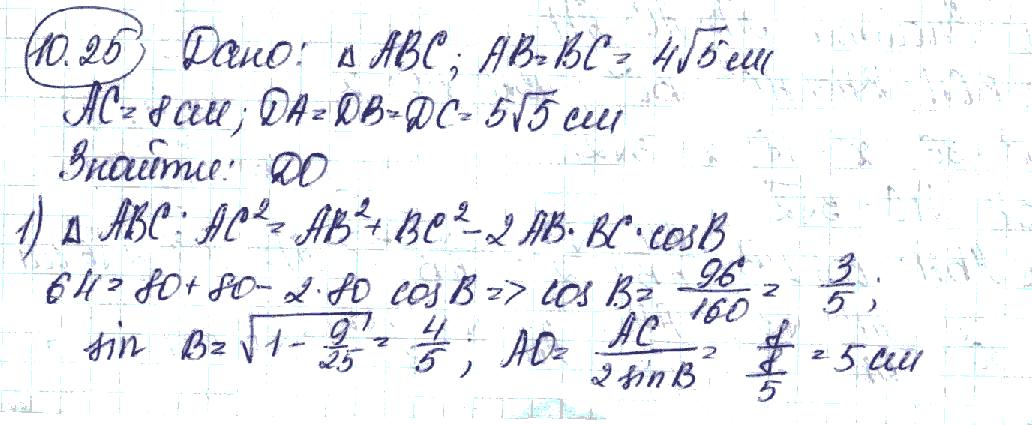 10.25 Дано: Δ ABC; AB=BC= 4√5 см
AC= 8 см; DA=DB=DC= 5√5 см
Знайти: DO
1) Δ ABC: AC²= AB²+ BC²- 2 AB· BC· cosB
64= 80+ 80- 2·80 cosB => cos B= 96/160 = 3/5;
sin B= √(1- 9/25) = 4/5; AO= AC/(2 sinB) = 8/(8/5) = 5 см